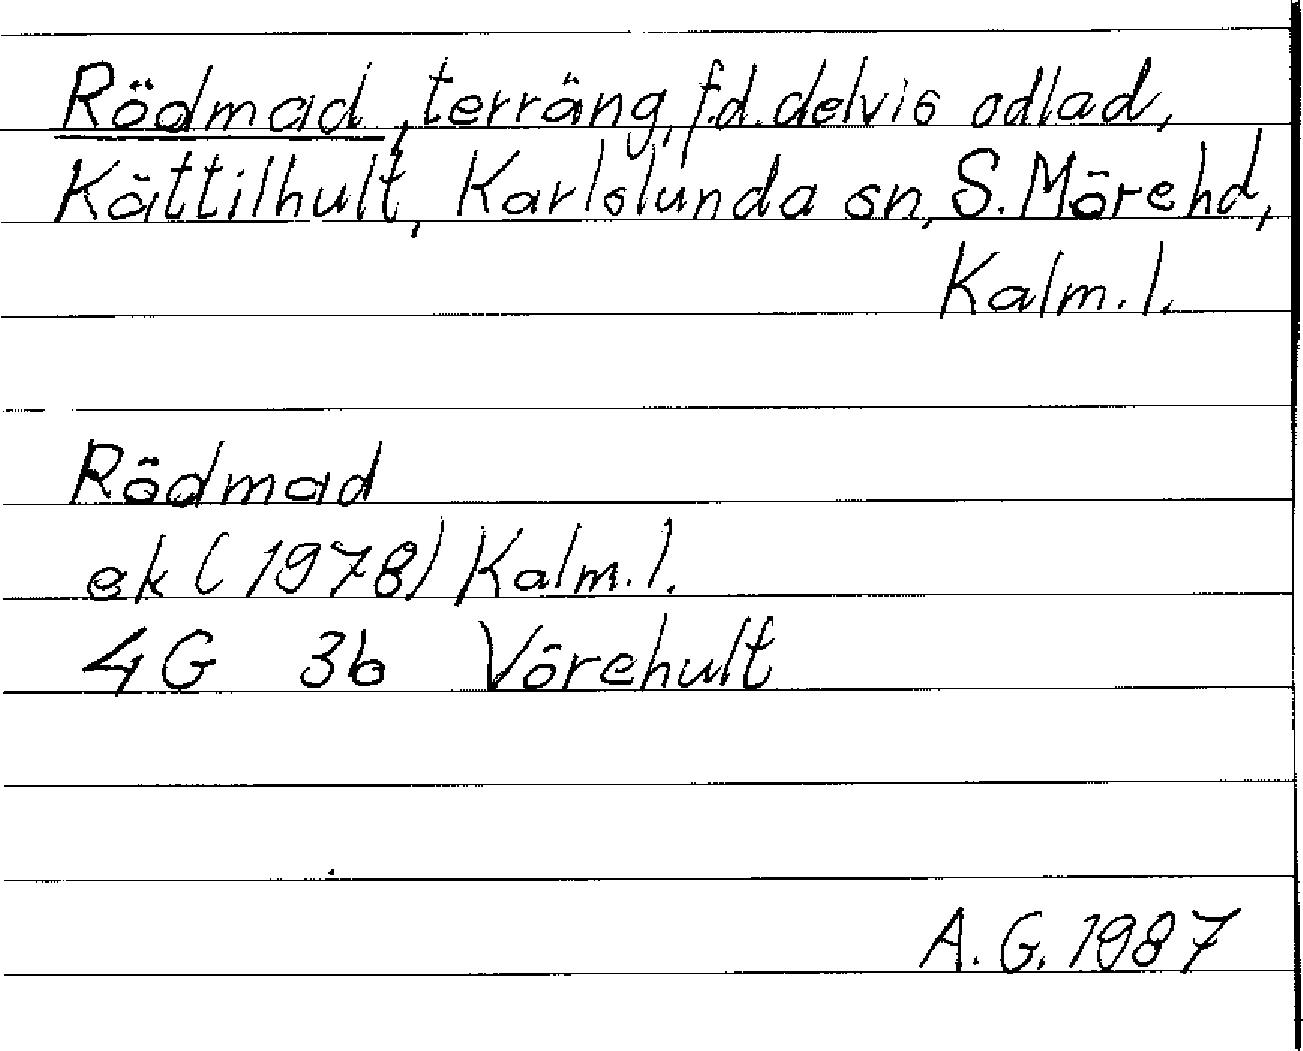 Rödmad, terräng, f.d. delvis odlad,
Kättilhult, Karlslunda sn, S. Möre hd,
Kalm. l.
Rödmad
ek (1978) Kalm. l.
4G 3b Vörehult
A. G. 1987